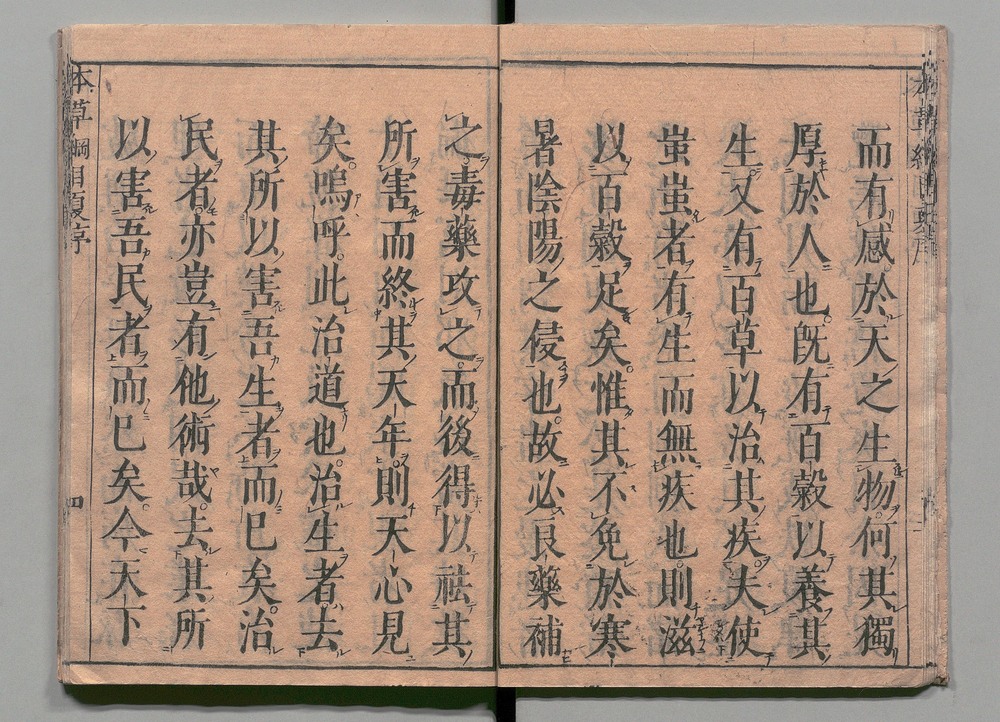 而有感於天之生物何其獨
厚於人也既有百穀以養其
生又有百草以治其疾夫使
蚩蚩者有生而無疾也則滋
以百穀足矣惟其不免於寒
暑陰陽之侵也故必良藥補
之毒藥攻之而後得以祛其
所害而終其天年則天心見
矣嗚呼此治道也治生者去
其所以害吾生者而已矣治
民者亦豈有他術哉去其所
以害吾民者而已矣今天下
本草綱目夏序
四